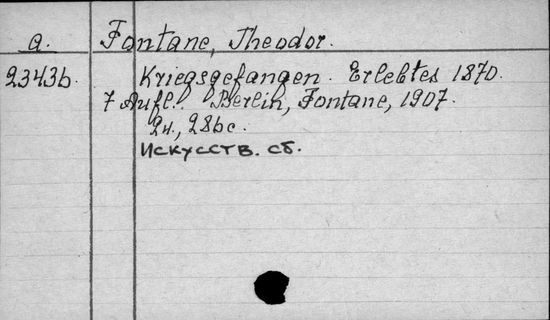 a. Fontane, Theodor.
23436. Kriegsgefangen. Erlebtes 1870.
7 Aufl. Berlin, Fontane, 1907.
2н., 286с.
Искусств. сб.